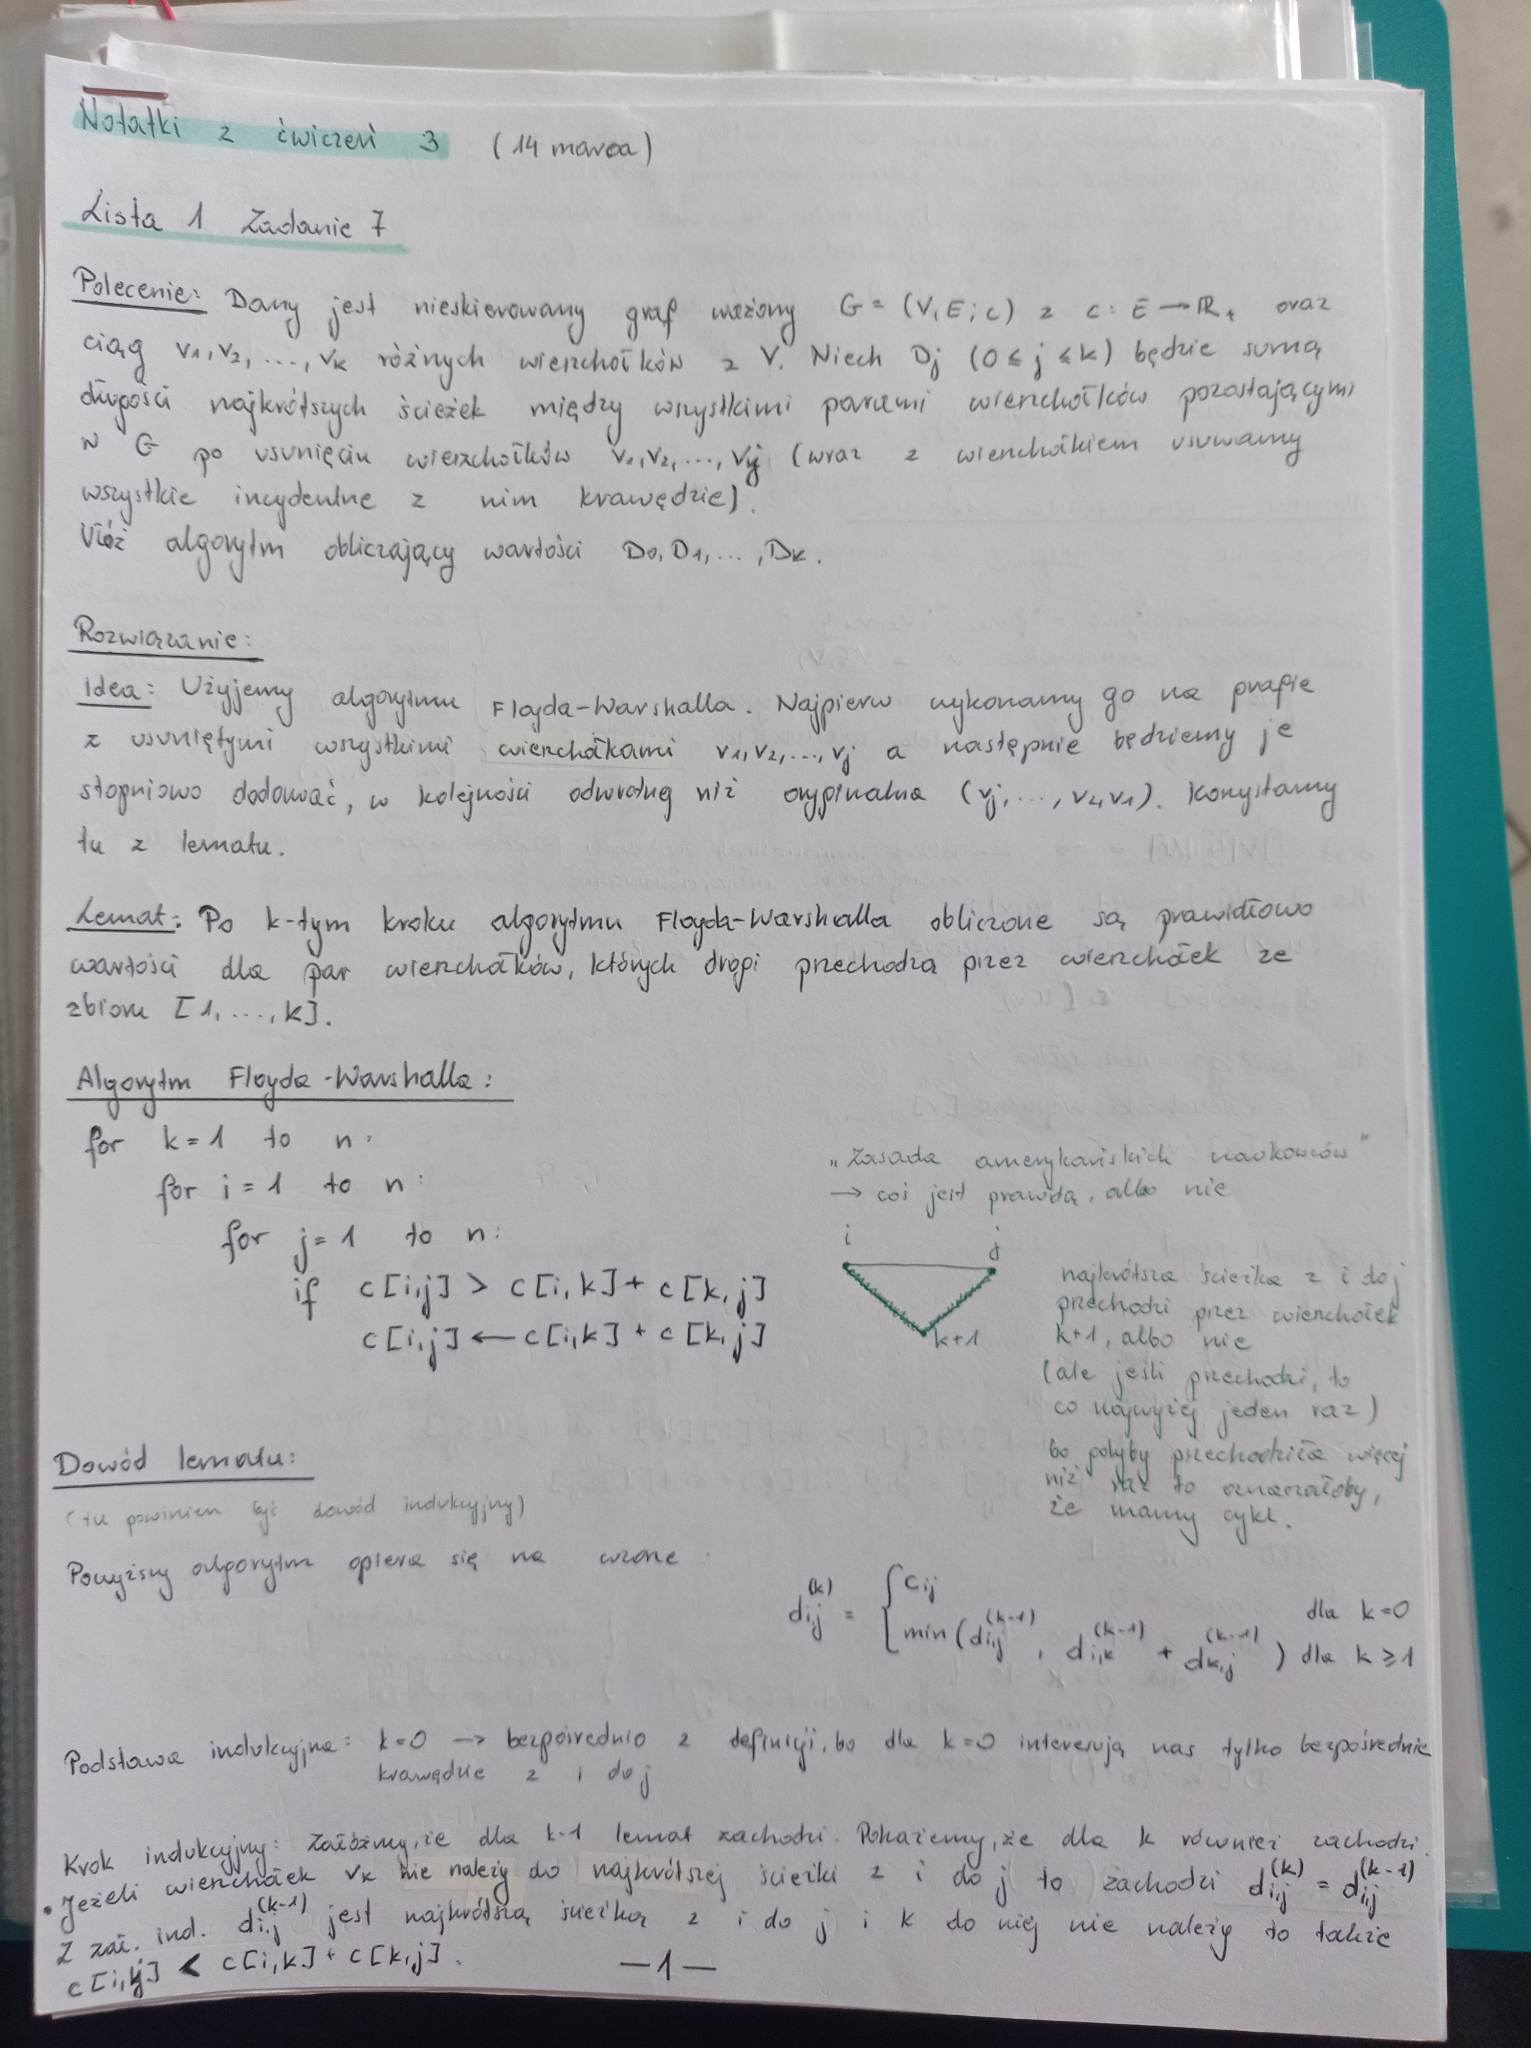 Notatki z ćwiczeń 3 (14 marca)
Lista 1 Zadanie 7
Polecenie: Dany jest nieskierowany graf ważony G = (V, E; c) z c: E → R+ oraz
ciąg v1, v2, ..., vk różnych wierzchołków z V. Niech Dj (0 ≤ j ≤ k) będzie sumą
długości najkrótszych ścieżek między wszystkimi parami wierzchołków pozostającymi
w G po usunięciu wierzchołków v1, v2, ..., vj (wraz z wierzchołkiem usuwamy
wszystkie incydentne z nim krawędzie).
Ułóż algorytm obliczający wartości D0, D1, ..., Dk.
Rozwiązanie:
Idea: Użyjemy algorytmu Floyda-Warshalla. Najpierw wykonamy go na grafie
z usuniętymi wszystkimi wierzchołkami v1, v2, ..., vj a następnie będziemy je
stopniowo dodawać, w kolejności odwrotnej niż oryginalna (vj, ..., v2, v1). Korzystamy
tu z lematu.
Lemat: Po k-tym kroku algorytmu Floyda-Warshalla obliczone są prawidłowo
wartości dla par wierzchołków, których drogi przechodzą przez wierzchołek ze
zbioru [1, ..., k].
Algorytm Floyda-Warshalla:
for k=1 to n:
for i=1 to n:
for j=1 to n:
if c[i,j] > c[i,k] + c[k,j]
c[i,j] ← c[i,k] + c[k,j]
„Zasada amerykańskich naukowców"
→ coś jest prawdą, albo nie
i j
k+1
najkrótsza ścieżka z i do j
przechodzi przez wierzchołek
k+1, albo nie
(ale jeśli przechodzi, to
co najwyżej jeden raz)
bo gdyby przechodziła więcej
niż raz to oznaczałoby,
że mamy cykl.
Dowód lematu:
(tu powinien być dowód indukcyjny)
Powyższy algorytm opiera się na wzorze:
d_{i,j}^{(k)} = { c_{ij} dla k=0
min(d_{i,j}^{(k-1)}, d_{i,k}^{(k-1)} + d_{k,j}^{(k-1)}) dla k ≥ 1
Podstawa indukcyjna: k=0 → bezpośrednio z definicji, bo dla k=0 interesują nas tylko bezpośrednie
krawędzie z i do j
Krok indukcyjny: Załóżmy, że dla k-1 lemat zachodzi. Pokażemy, że dla k również zachodzi.
• Jeżeli wierzchołek vk nie należy do najkrótszej ścieżki z i do j to zachodzi d_{i,j}^{(k)} = d_{i,j}^{(k-1)}
Z zał. ind. d_{i,j}^{(k-1)} jest najkrótszą ścieżką z i do j i k do niej nie należy to także
c[i,j] < c[i,k] + c[k,j].
—1—